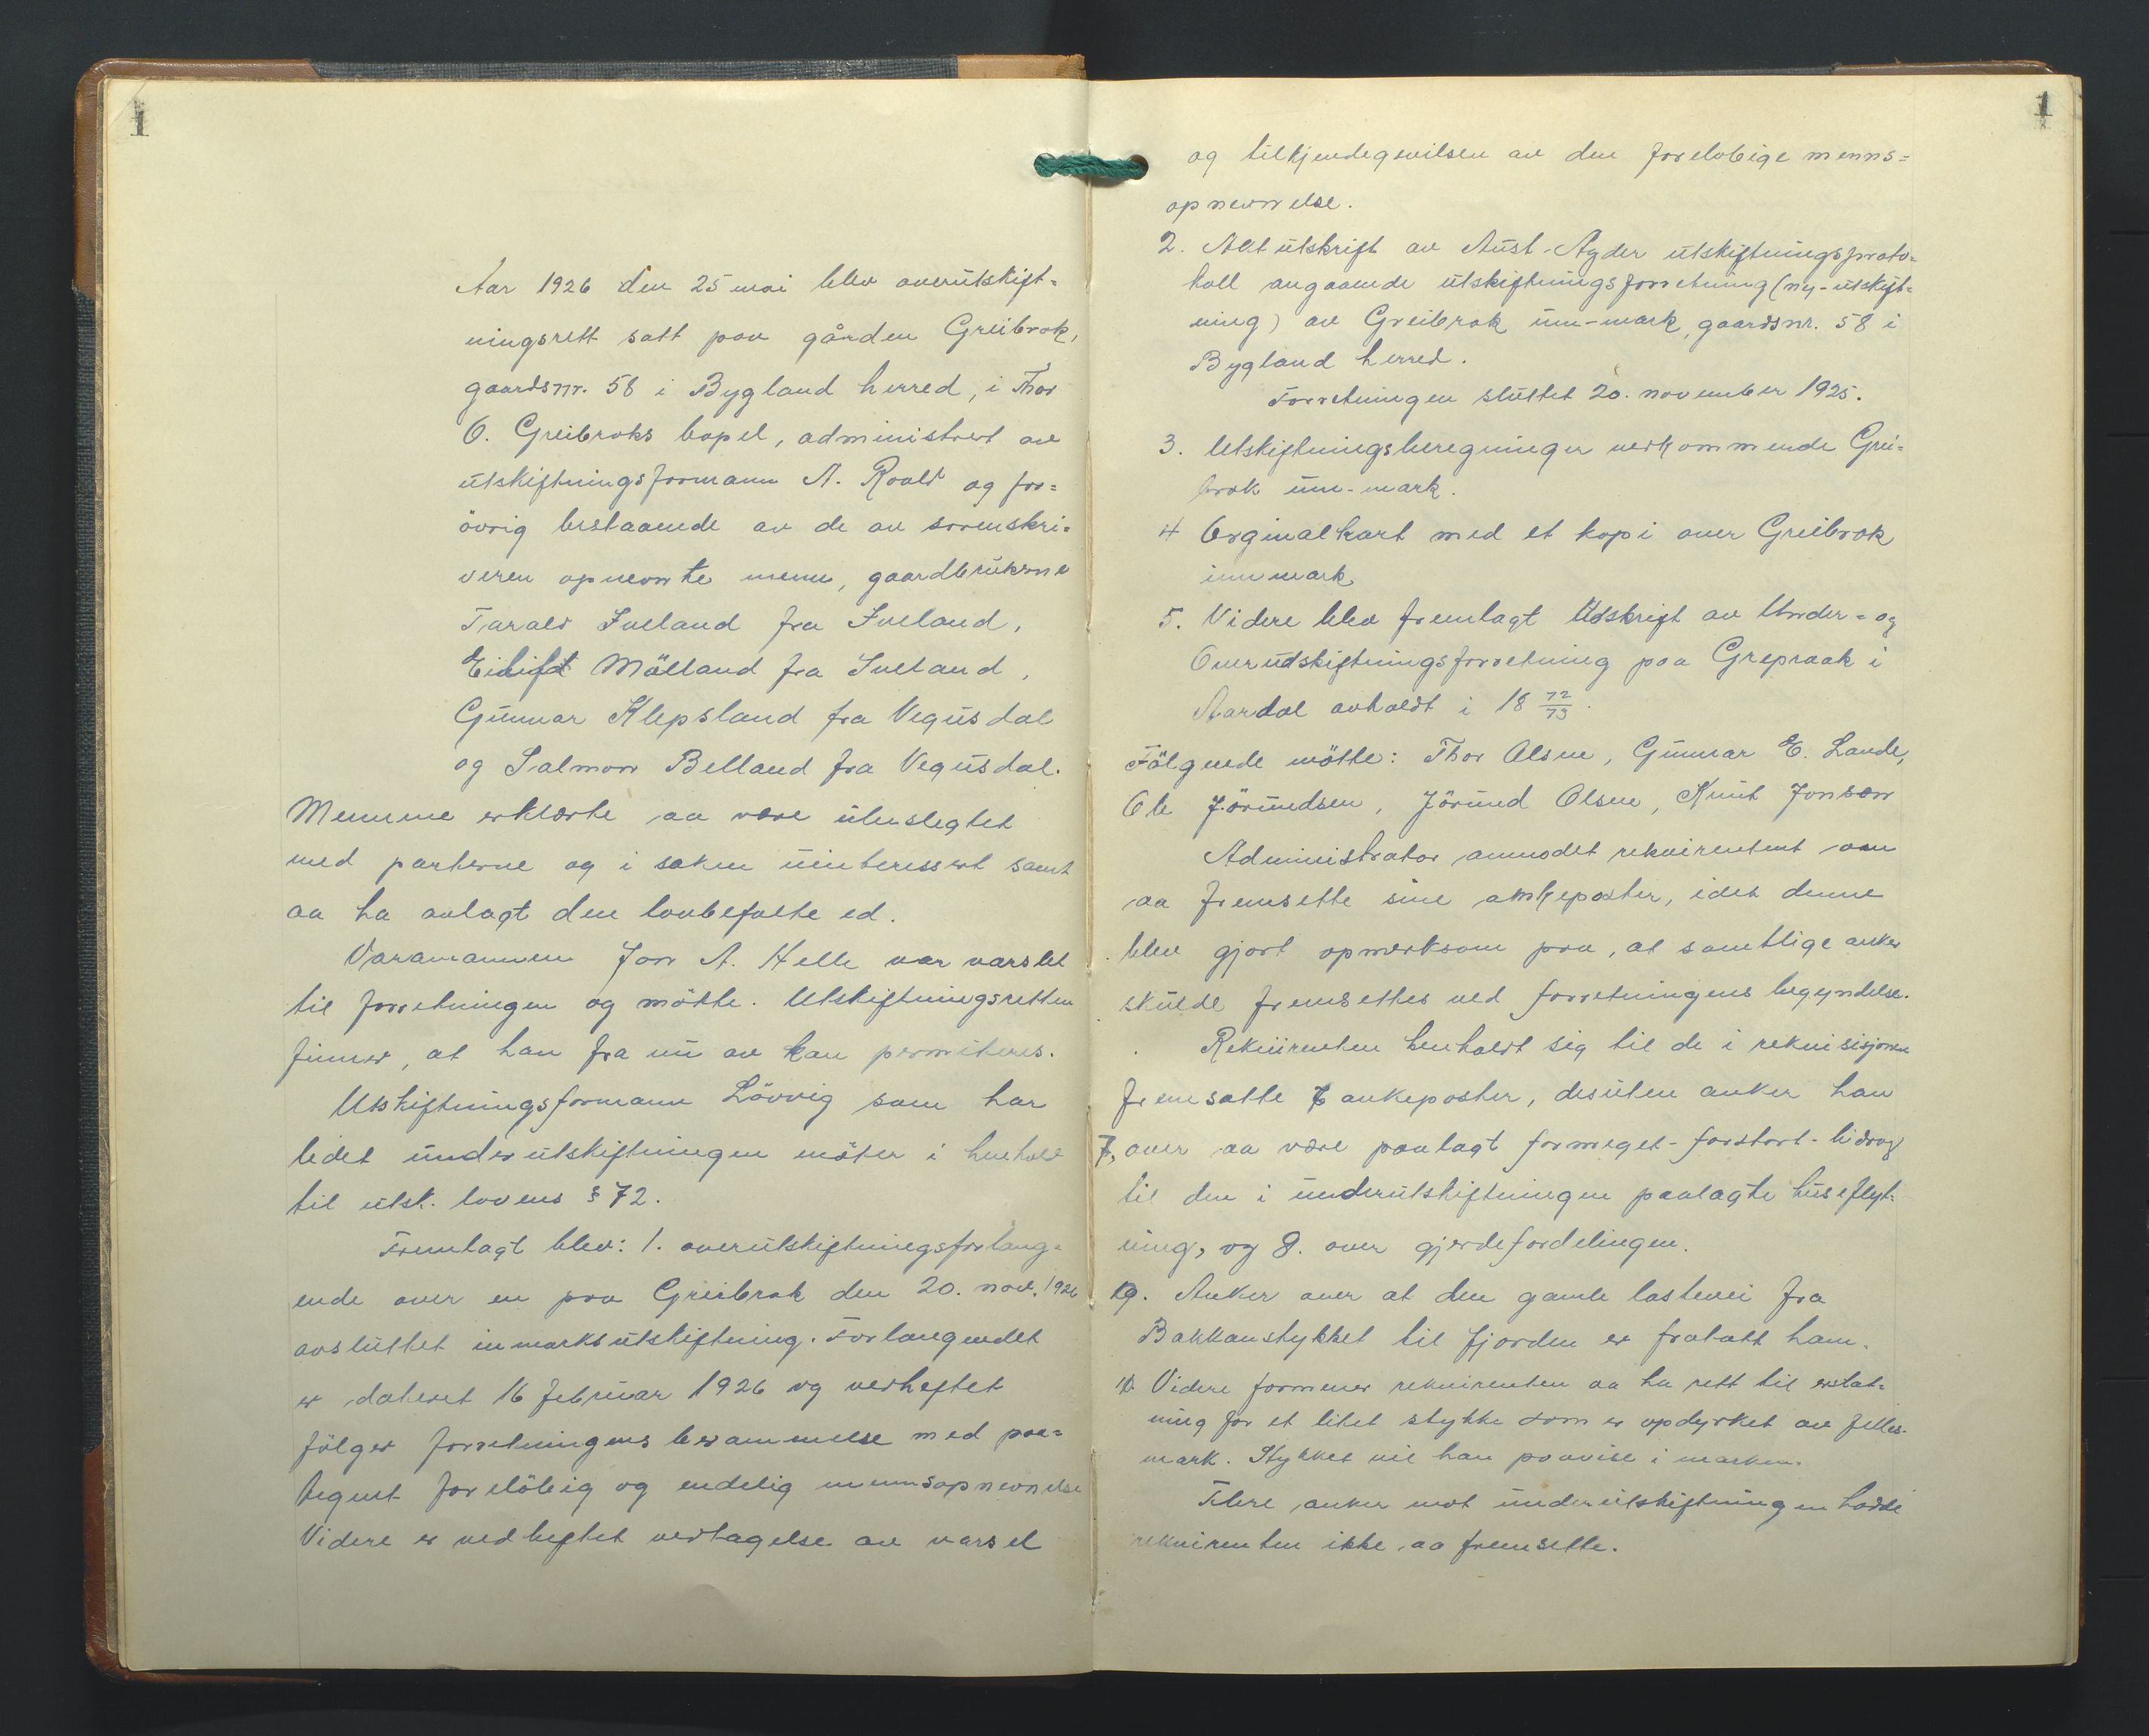 1
Aar 1926 den 25 mai blev overutskift=
ningsrett satt paa gården Greibrok,
gaardsnr. 58 i Bygland herred, i Thor
O. Greibroks bopel, administrert av
utskiftningsformann A. Roald og for=
övrig bestaaende av de av sorenskri=
veren opnevnte menn, gaardbrukerne
Tarald Iveland fra Iveland,
Eilift Mölland fra Iveland,
Gunnar Klepsland fra Vegusdal
og Salmon Belland fra Vegusdal.
Mennene erklærte aa være ubeslegtet
med parterne og i saken uinteressert samt
aa ha avlagt den lovbefalte ed.
Varamannen Jon A. Helle var varslet
til forretningen og mötte. Utskiftningsretten
finner, at han fra nu av kan permiteres.
Utskiftningsformann Lövvig som har
ledet underutskiftningen möter i henhold
til utsk. lovens § 72.
Fremlagt blev: 1. overutskiftningsforlang=
ende over en paa Greibrok den 20. nov. 1926
avsluttet inmarksutskiftning. Forlangendet
er dateret 16 februar 1926 og vedheftet
fölger forretningens berammelse med paa=
tegnet forelöbig og endelig mennsopnevnelse
Videre er vedheftet vedtagelse av varsel
1
og tilkjendegivelsen av den forelobige menns=
opnevnelse.
2. Aktutskrift av Aust-Agder utskiftningsproto=
koll angaaende utskiftningsforretning (ny-utskift=
ning) av Greibrok inn-mark, gaardsnr. 58 i
Bygland herred.
Forretningen sluttet 20. november 1925.
3. Utskiftningsberegninger vedkommende Grei=
brok inn-mark.
4 Orginalkart med et kopi over Greibrok
innmark
5. Videre blev fremlagt Utskrift av Under= og
Overudskiftningsforretning paa Grepraak i
Aardal avholdt i 18 72/73.
Fölgende mötte: Thor Olsen, Gunnar E. Lande,
Ole Jörundsen, Jörund Olsen, Knut Jonson
Administrator anmodet rekvirentent om
aa fremsette sine ankeposter, idet denne
blev gjort opmerksom paa, at samtlige anker
skulde fremsettes ved forretningens begyndelse.
Rekvirenten henholdt sig til de i rekvisisjonen
fremsatte 6 ankeposter, desuten anker han
7, over aa være paalagt formeget-forstort-bidrag
til den i underutskiftningen paalagte huseflyt=
ning, og 8. over gjerdefordelingen.
9. Anker over at den gamle lastevei fra
Bakkanstykket til fjorden er fratatt ham.
10. Videre formener rekvirenten aa ha rett til erstat=
ning for et litet stykke som er opdyrket av felles-
mark. Stykket vil han paavise i marken.
Flere anker mot underutskiftningen hadde
rekvirenten ikke aa fremsette.